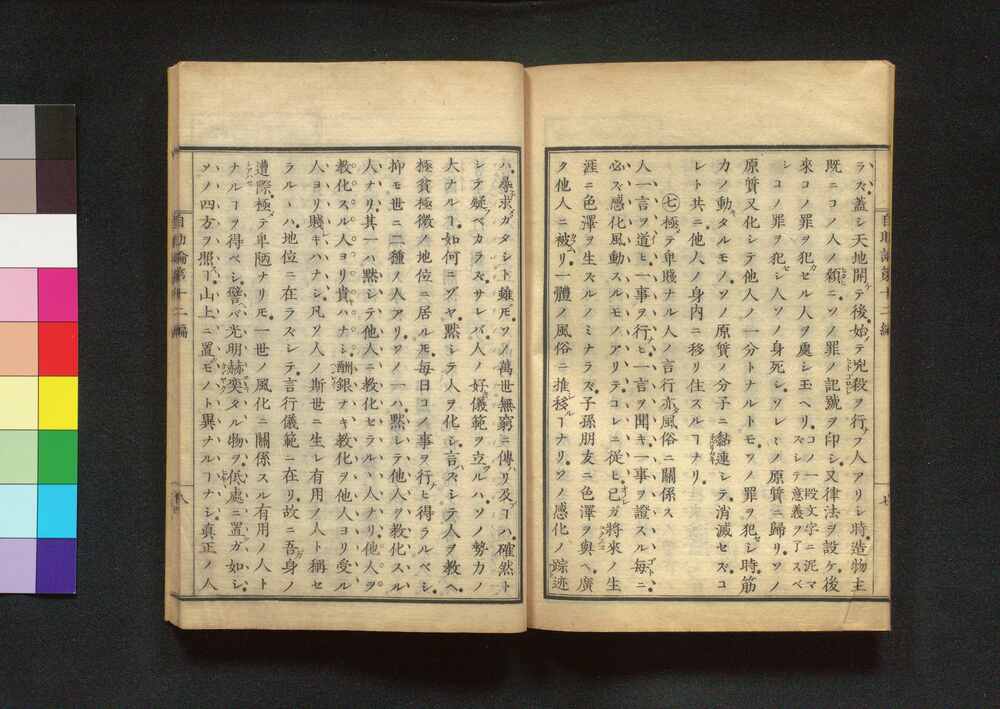 ラズ蓋シ天地開テ後始テ兇殺ヲ行フ人アリシ時造物主
既ニコノ人ノ額ニソノ罪ノ記號ヲ印シ又律法ヲ設ケ後
來コノ罪ヲ犯セル人ヲ虞シ玉ヘリコノ一段文字ニ泥マズシテ意義ヲ了スベ
シコノ罪ヲ犯シ人ソノ身死シソレソレノ原質ニ歸リソノ
原質又化シテ他人ノ一分トナルトモソノ罪ヲ犯シ時筋
力ノ動タルモノソノ原質ノ分子ニ黏連シテ消滅セズコ
レト共ニ他人ノ身內ニ移リ住スルヿナリ
㊆極テ卑賤ナル人ノ言行亦風俗ニ關係ス
人一言ヲ道ヒ一事ヲ行ヒ一言ヲ聞キ一事ヲ證スル每ニ
必ズ感化風動スルモノアリテコレニ從ヒ己ガ將來ノ生
涯ニ色澤ヲ生スルノミナラズ子孫朋友ニ色澤ヲ與ヘ廣
ク他人ニ被リ一體ノ風俗ニ推移ルヿナリソノ感化ノ踪迹
ハ尋求ガタシト雖𪜈ソノ萬世無窮ニ傳リ及ブヿハ確然ト
シテ疑ベカラズサレバ人ノ好儀範ヲ立ルハソノ勢力ノ
大ナルヿ如何ニゾヤ黙シテ人ヲ化シ言ズシテ人ヲ教ヘ
極貧極微ノ地位ニ居ル𪜈每日コノ事ヲ行ヒ得ラルベシ
抑モ世ニ二種ノ人アリソノ一ハ黙シテ他人ヲ教化スル
人ナリ其一ハ黙シテ他人ニ教化セラルヽ人ナリ他人ヲ
教化スル人ヨリ貴ハナシ酬銀ヲキ教化ヲ他人ヨリ受ル
人ヨリ賤キハナシ凡ソ人ノ斯世ニ生レ有用ノ人ト稱セ
ラルヽハ地位ニ在ラズシテ言行儀範ニ在リ故ニ吾身ノ
遭際極テ卑陋ナリ𪜈一世ノ風化ニ關係スル有用ノ人ト
ナルヿヲ得ベシ譬バ光明赫奕タル物ヲ低處ニ置ガ如シ
ソノ四方ヲ照スヿ山上ニ置モノト異ナルヿナシ真正ノ人
自助論第十二編
七
自助論第十二編
八